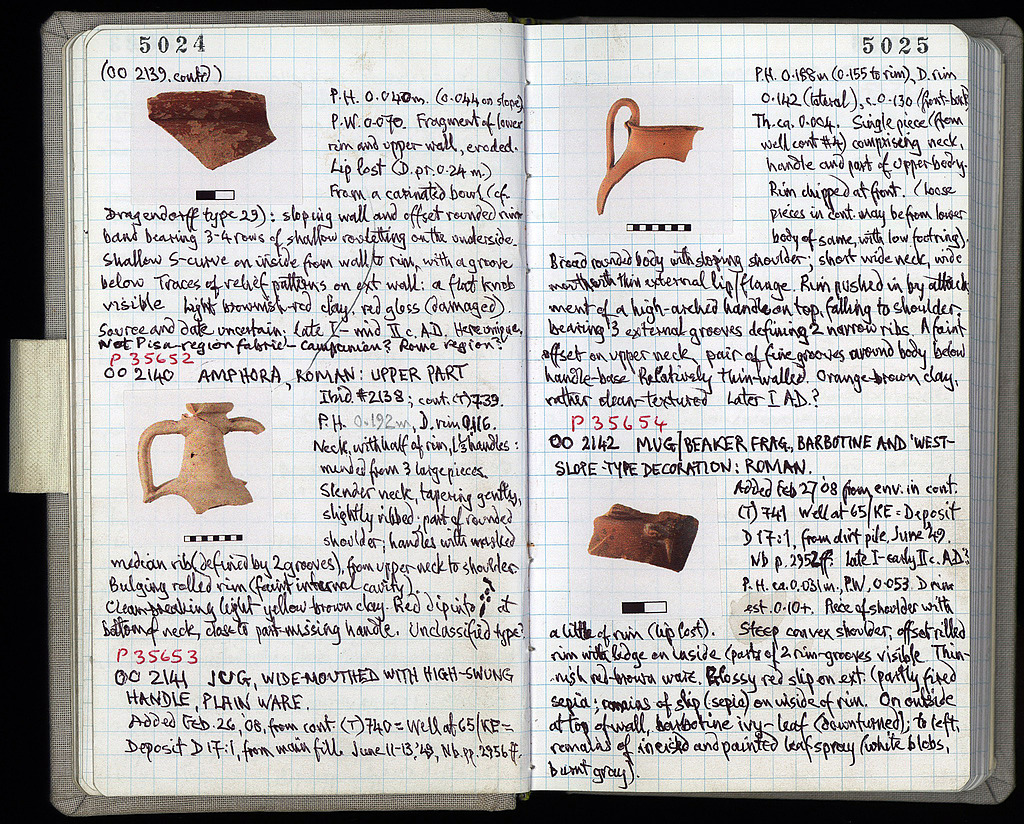 5024
(OO 2139. cont'd)
P.H. 0.040m. (0.044 on slope),
P.W. 0.070. Fragment of lower
rim and upper wall, eroded.
Lip lost (D. pr. 0.24 m.)
From a carinated bowl (cf.
Dragendorff type 29): sloping wall and offset rounded rim
band bearing 3-4 rows of shallow rouletting on the underside.
Shallow S-curve on inside from wall to rim, with a groove
below Traces of relief patterns on ext wall: a flat knob
visible Light brownish-red clay, red gloss (damaged).
Source and date uncertain: late I - mid II c. A.D. Here unique,
Not Pisa-region fabric - Campanian? Rome region?
P 35652
OO 2140 AMPHORA, ROMAN: UPPER PART
Ibid. #2138; cont. (T)739.
P.H. 0.192m, D. rim 0.116.
Neck, with half of rim, 1½ handles:
mended from 3 large pieces.
Slender neck, tapering gently,
slightly ribbed; part of rounded
shoulder; handles with
median rib (defined by 2 grooves), from upper neck to shoulder
Bulging rolled rim (faint internal cavity).
Clean-breaking light yellow brown clay. Red dipinto at
bottom of neck, close to part-missing handle. Unclassified type?
P 35653
OO 2141 JUG, WIDE-MOUTHED WITH HIGH-SWUNG
HANDLE, PLAIN WARE.
Added Feb. 26 '08, from cont (T)740 = Well at 65/KE =
Deposit D 17:1, from main fill. June 11-13, '49, Nb. pp. 2956 ff.
5025
P.H. 0.188m (0.155 to rim), D. rim
0.142 (lateral), c. 0.130 (front-back)
Th. ca. 0.004. Single piece (from
well cont #4) comprising neck,
handle and part of upper body.
Rim chipped at front. (loose
pieces in cont. may be from lower
body of same, with low footring).
Broad rounded body with sloping shoulder; short wide neck, wide
mouth with thin external lip/flange. Rim pushed in by attach
ment of a high-arched handle on top, falling to shoulder,
bearing 3 external grooves defining 2 narrow ribs. A faint
offset on upper neck, pair of fine grooves around body below
handle-base Relatively thin-walled. Orange-brown clay,
rather clean-textured Later I A.D.?
P 35654
OO 2142 MUG/BEAKER FRAG., BARBOTINE AND 'WEST-
SLOPE'-TYPE DECORATION: ROMAN.
Added Feb 27 '08 from env. in cont.
(T) 741 Well at 65/KE = Deposit
D 17:1, from dirt pile, June '49.
Nb p. 2952ff. late I-early II c. A.D.?
P.H. ca. 0.031m, P.W. 0.053. D rim
est. 0.10+. Piece of shoulder with
a little of rim (lip lost). Steep convex shoulder; offset rilled
rim with ledge on inside (parts of 2 rim-grooves visible. Thin-
nish red-brown ware. Glossy red slip on ext. (partly fired
sepia; remains of slip (sepia) on inside of rim. On outside
at top of wall, barbotine ivy-leaf (downturned); to left,
remains of incised and painted leaf-spray (white blobs,
burnt gray).